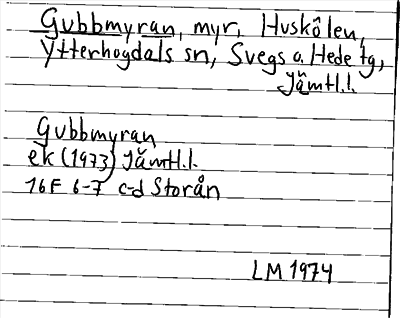 Gubbmyran, myr, Huskôlen,
Ytterhogdals sn, Svegs o. Hede tg,
Jämtl.l.
Gubbmyran
ek (1973) Jämtl.l.
16F 6-7 c-d Storån
LM 1974